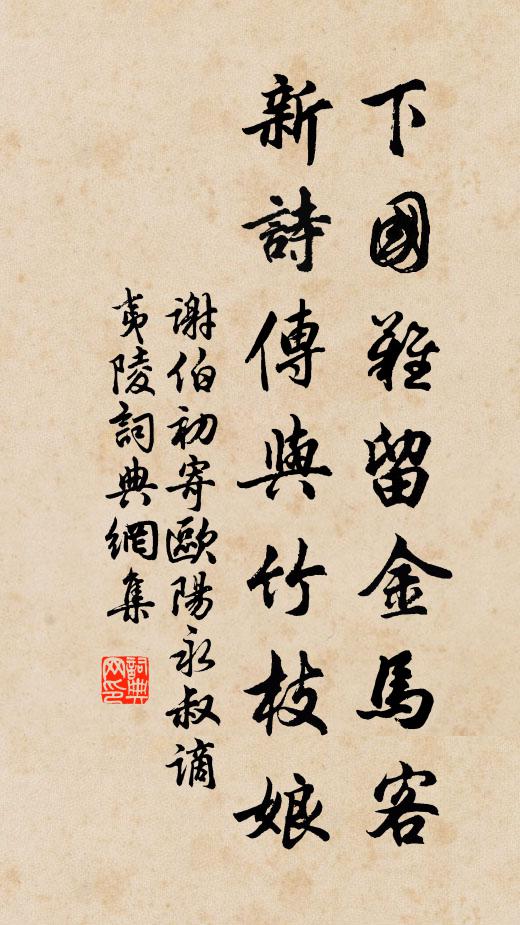 下國難留金馬客
新詩傳與竹枝娘
謝伯初寄歐陽永叔謫
夷陵詞典網集
詞典
网印